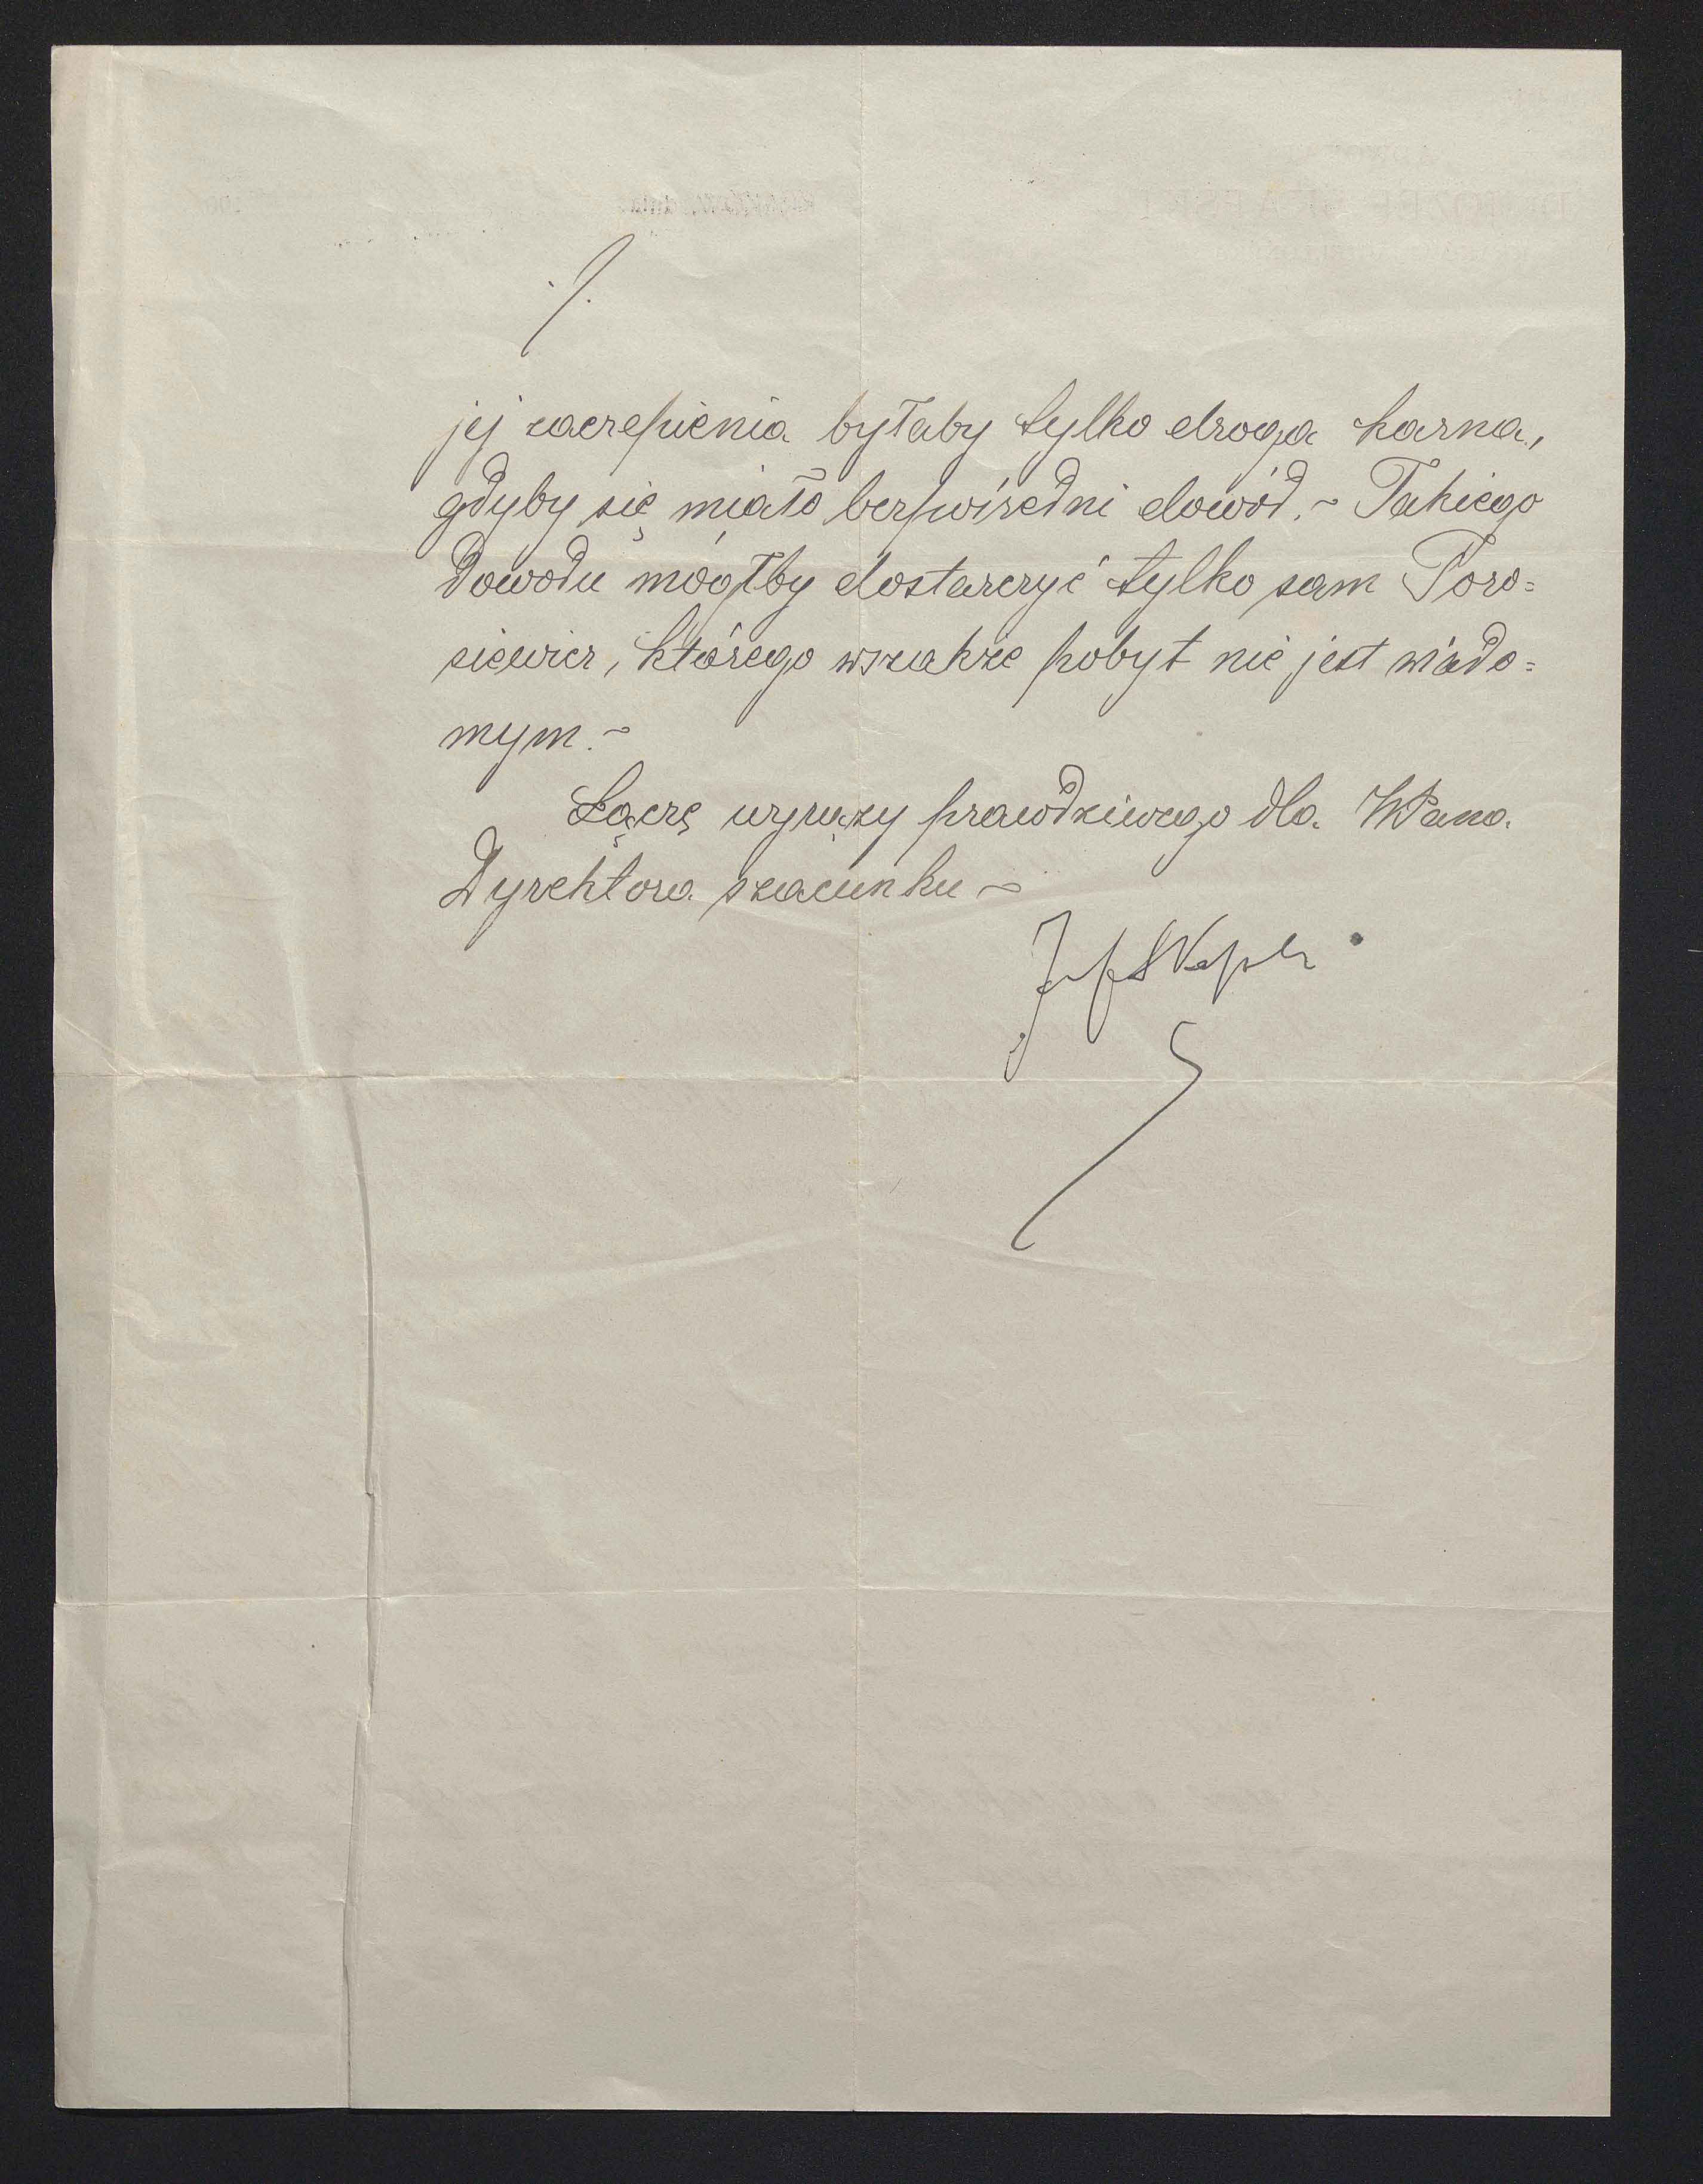 ./.
jej zaczepienia byłaby tylko droga karna,
gdyby się miało bezpośredni dowód. ~ Takiego
dowodu mógłby dostarczyć tylko sam Toro=
siewicz, którego wszakże pobyt nie jest wiado=
mym. ~
Łączę wyrazy prawdziwego dla WPana
Dyrektora szacunku ~